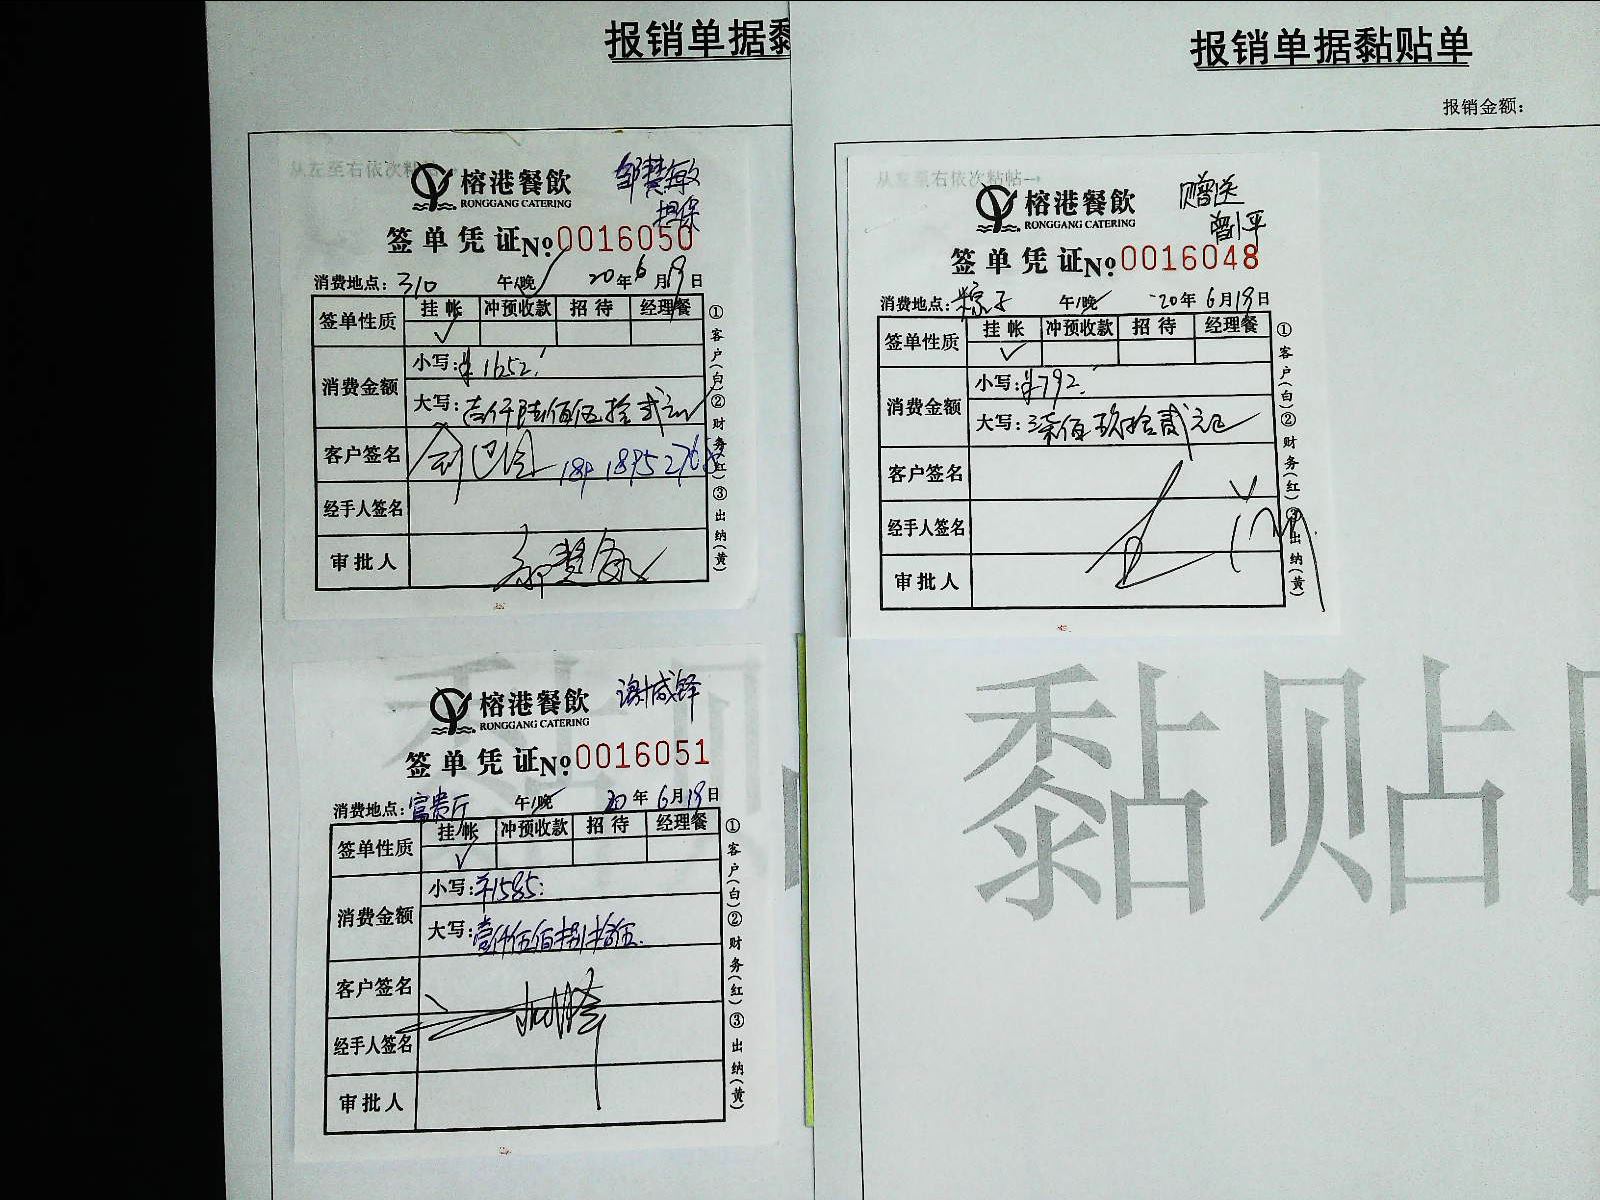 报销单据黏
从左至右依次粘帖→
榕港餐飲
RONGGANG CATERING
邹慧敏
担保
签单凭证№0016050
消费地点: 310 午/晚 20年6月19日
签单性质 挂帐 冲预收款 招待 经理餐
✓
消费金额 小写: ¥1652
大写: 壹仟陆佰伍拾贰元
客户签名
经手人签名
审批人
①客户(白)②财务(红)③出纳(黄)
榕港餐飲
RONGGANG CATERING
签单凭证№0016051
消费地点: 富贵厅 午/晚 20年6月19日
签单性质 挂帐 冲预收款 招待 经理餐
✓
消费金额 小写: ¥1585
大写: 壹仟伍佰捌拾伍
客户签名
经手人签名
审批人
①客户(白)②财务(红)③出纳(黄)
报销单据黏贴单
报销金额:
从左至右依次粘帖→
榕港餐飲
RONGGANG CATERING
赠送
签单凭证№0016048
消费地点: 粽子 午/晚 20年6月19日
签单性质 挂帐 冲预收款 招待 经理餐
✓
消费金额 小写: ¥792
大写: 柒佰玖拾贰元正
客户签名
经手人签名
审批人
①客户(白)②财务(红)③出纳(黄)
黏贴